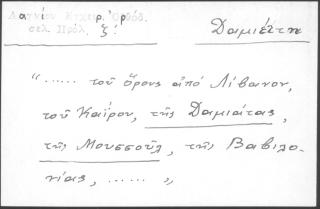 Λαγνίου Εγχειρ. Ὀρθόδ.
σελ. Πρόλ. ξ!
Δαμιέττη
“ ...... τοῦ ὄρους ἀπό Λίβανον,
τοῦ Καΐρου, τῆς Δαμιάτας,
τῆς Μουσσούλ, τῆς Βαβιλο-
νίας, ...... „